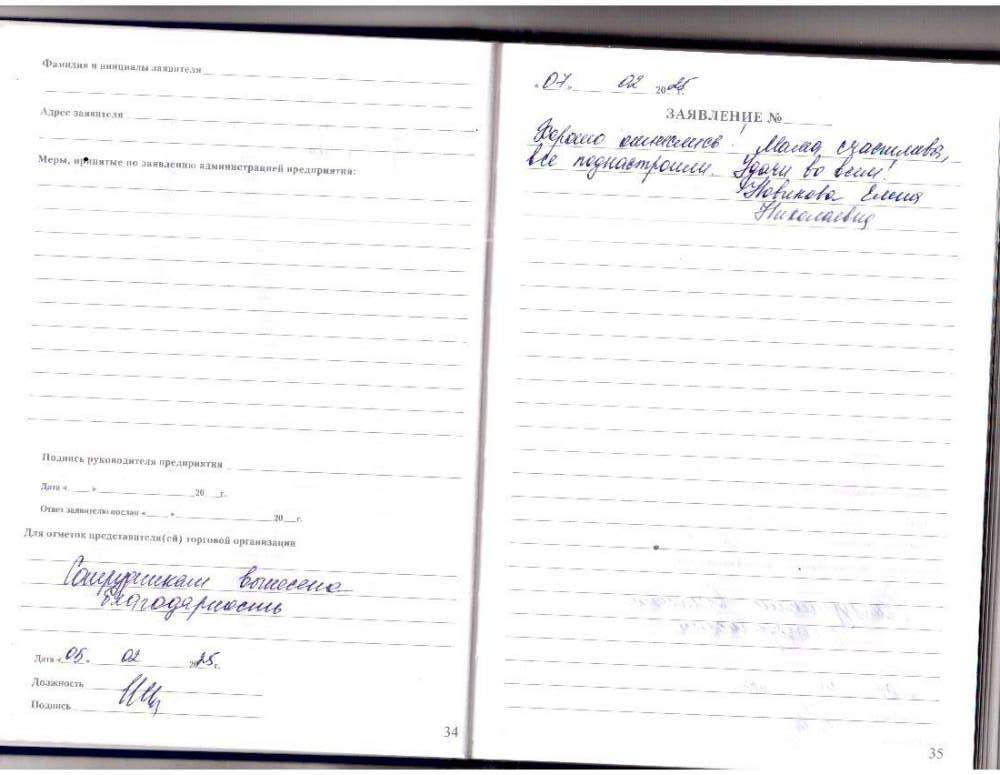 Фамилия и инициалы заявителя
Адрес заявителя
Меры, принятые по заявлению администрацией предприятия:
Подпись руководителя предприятия
Дата « » 20 г.
Ответ заявителю послан « » 20 г.
Для отметок представителя(ей) торговой организации
Сотрудникам вынесена
благодарность
Дата «05» 02 2025 г.
Должность
Подпись
34
«07» 02 2025 г.
ЗАЯВЛЕНИЕ №
Хорошо ! Мама счастлива,
все поднастроили. Удачи во всем!
Новикова Елена
Николаевна
35